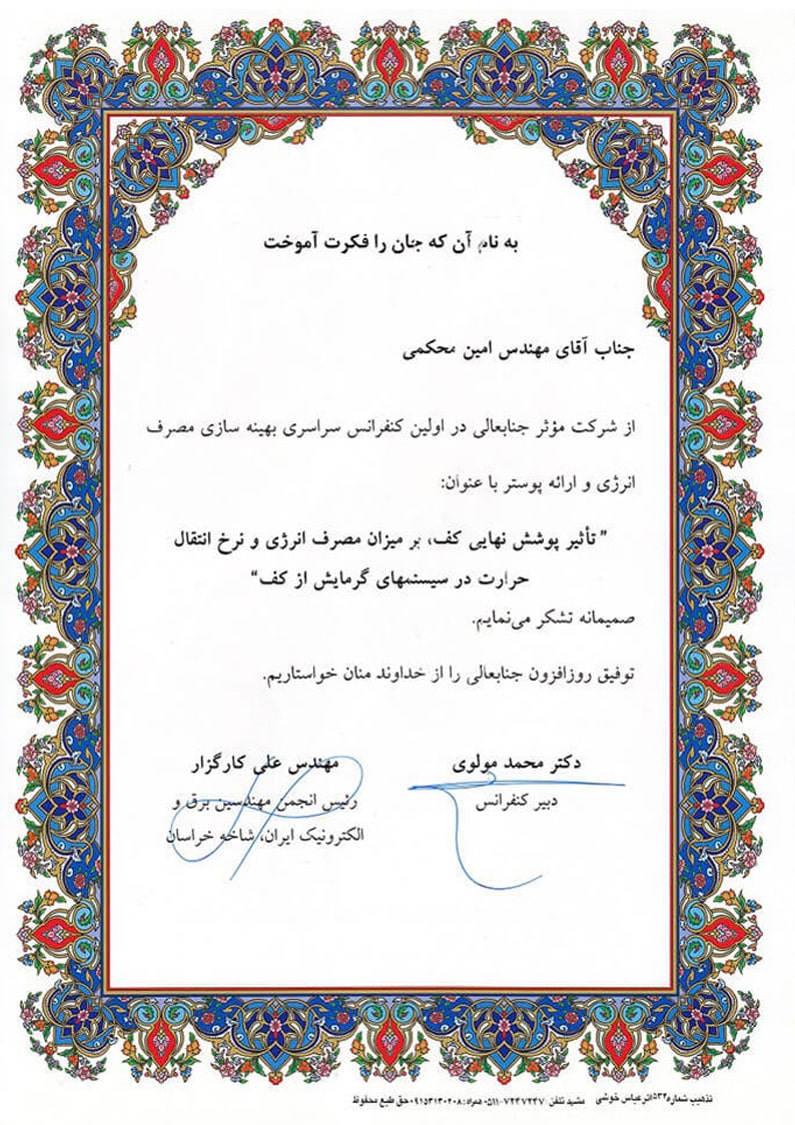 به نام آن که جان را فکرت آموخت
جناب آقای مهندس امین محکمی
از شرکت مؤثر جنابعالی در اولین کنفرانس سراسری بهینه سازی مصرف
انرژی و ارائه پوستر با عنوان:
" تأثیر پوشش نهایی کف، بر میزان مصرف انرژی و نرخ انتقال
حرارت در سیستمهای گرمایش از کف"
صمیمانه تشکر می‌نمایم.
توفیق روزافزون جنابعالی را از خداوند منان خواستاریم.
دکتر محمد مولوی
دبیر کنفرانس
مهندس علی کارگزار
رئیس انجمن مهندسین برق و
الکترونیک ایران، شاخه خراسان
تذهیب شماره ۵۳۲ اثر عباس خوشی مشهد تلفن: ۷۲۴۷۲۴۷-۰۵۱۱ همراه: ۰۹۱۵۳۱۳۰۲۰۸ حق طبع محفوظ